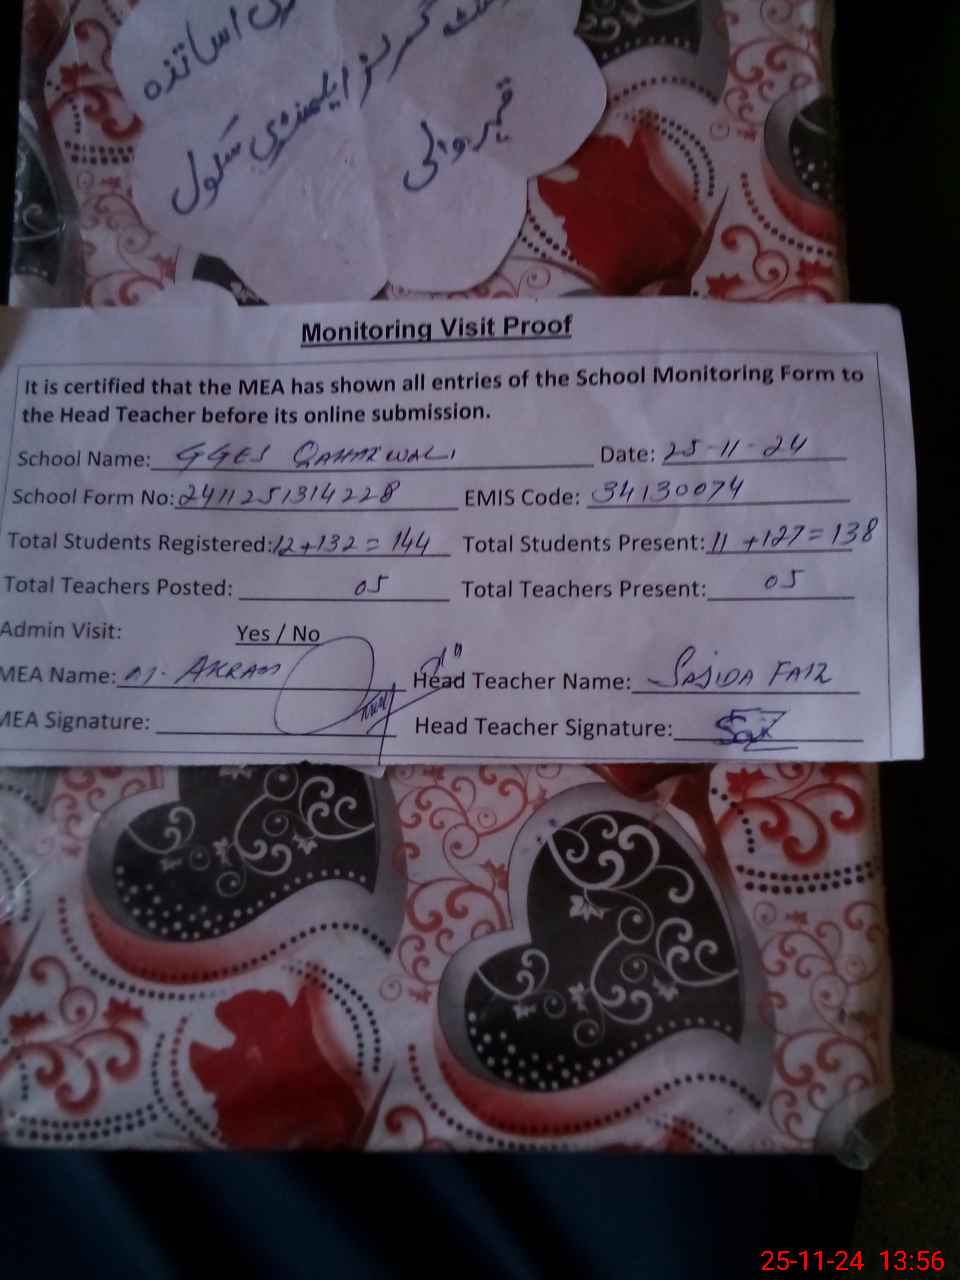 اساتذہ
گرلز ایلمنٹری سکول
قمیر والی
Monitoring Visit Proof
It is certified that the MEA has shown all entries of the School Monitoring Form to
the Head Teacher before its online submission.
School Name: GGES QAMARWALI Date: 25-11-24
School Form No: 2411251314228 EMIS Code: 34130074
Total Students Registered: 12+132=144 Total Students Present: 11+127=138
Total Teachers Posted: 05 Total Teachers Present: 05
Admin Visit: Yes / No
MEA Name: M. AKRAM Head Teacher Name: SAJIDA FAIZ
MEA Signature: Head Teacher Signature:
25-11-24 13:56